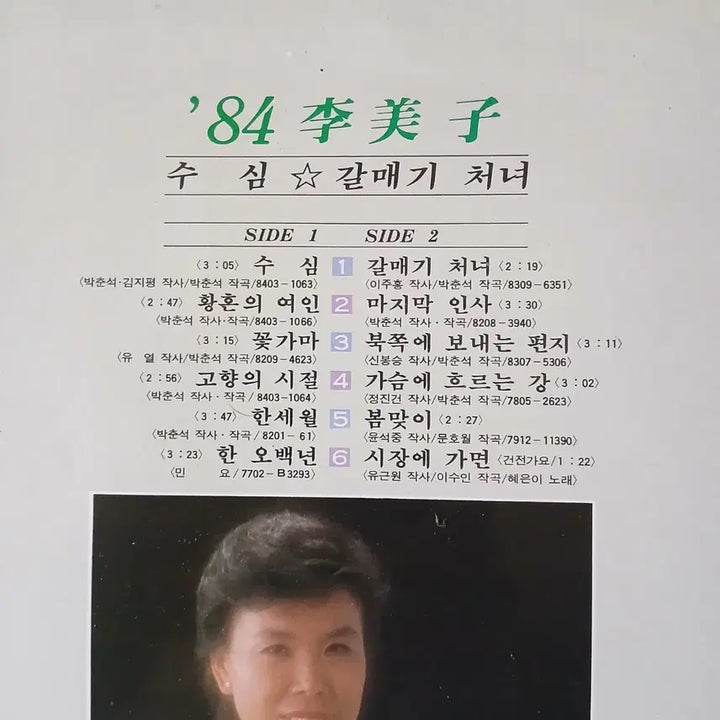 ’84 李美子
수 심 ☆ 갈매기 처녀
SIDE 1 SIDE 2
〈3 : 05〉 수 심 1 갈매기 처녀 〈2 : 19〉
〈박춘석·김지평 작사/박춘석 작곡/8403-1063〉 〈이주홍 작사/박춘석 작곡/8309-6351〉
〈2 : 47〉 황혼의 여인 2 마지막 인사 〈3 : 30〉
〈박춘석 작사·작곡/8403-1066〉 〈박춘석 작사 · 작곡/8208-3940〉
〈3 : 15〉 꽃가마 3 북쪽에 보내는 편지 〈3 : 11〉
〈유 열 작사/박춘석 작곡/8209-4623〉 〈신봉승 작사/박춘석 작곡/8307-5306〉
〈2 : 56〉 고향의 시절 4 가슴에 흐르는 강 〈3 : 02〉
〈박춘석 작사 · 작곡 / 8403-1064〉 〈정진건 작사/박춘석 작곡/7805-2623〉
〈3 : 47〉 한세월 5 봄맞이 〈2 : 27〉
〈박춘석 작사 · 작곡 / 8201- 61〉 〈윤석중 작사/문호월 작곡/7912-11390〉
〈3 : 23〉 한 오백년 6 시장에 가면 〈건전가요/1 : 22〉
〈민 요 / 7702- B 3293〉 〈유근원 작사/이수인 작곡/혜은이 노래〉